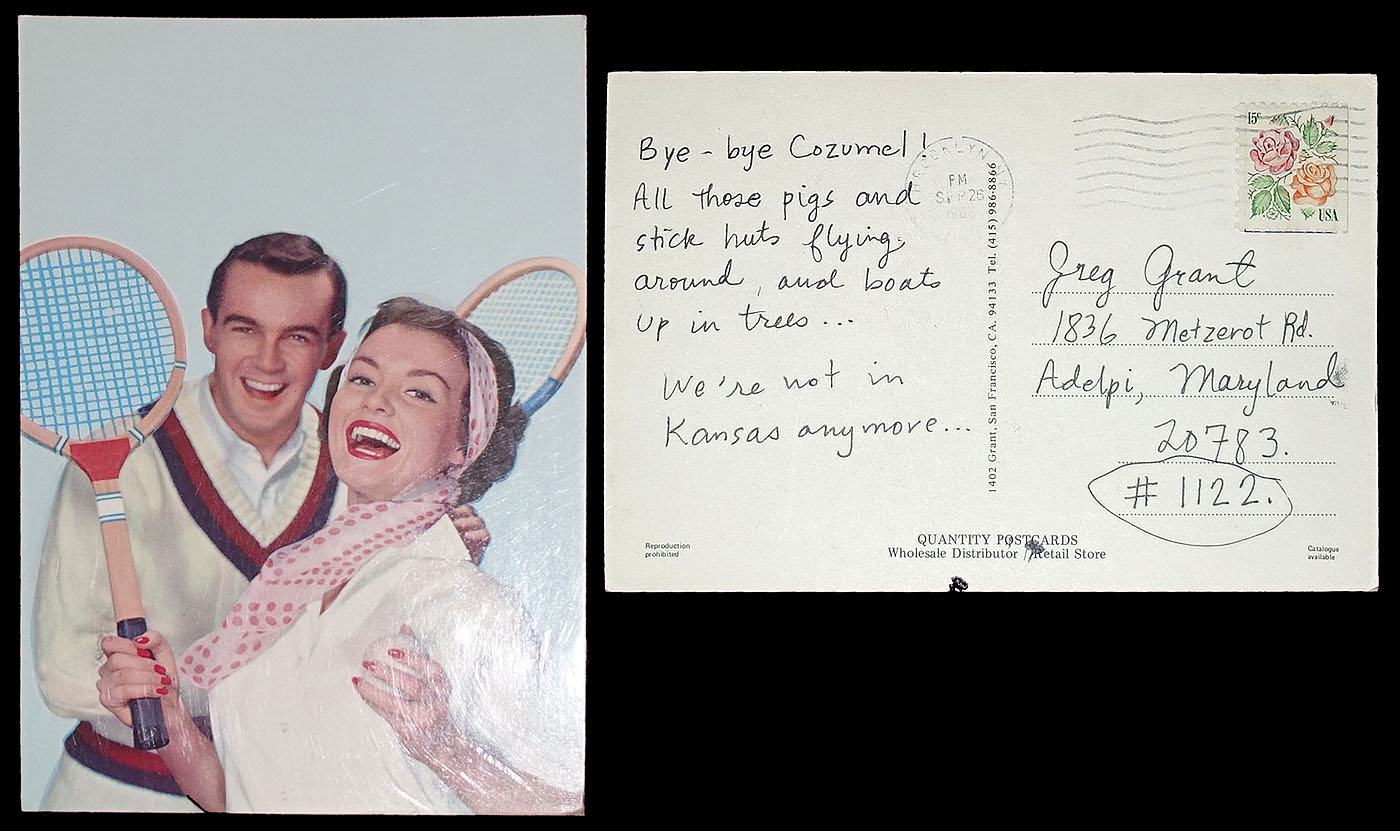 Bye-bye Cozumel!
All those pigs and
stick huts flying
around, and boats
up in trees...
We're not in
Kansas anymore...
BROOKLYN, NY
PM
SEP 26
1402 Grant, San Francisco, CA. 94133 Tel. (415) 986-8866
15c
USA
Greg Grant
1836 Metzerot Rd.
Adelpi, Maryland
20783.
# 1122.
Reproduction
prohibited
QUANTITY POSTCARDS
Wholesale Distributor / Retail Store
Catalogue
available